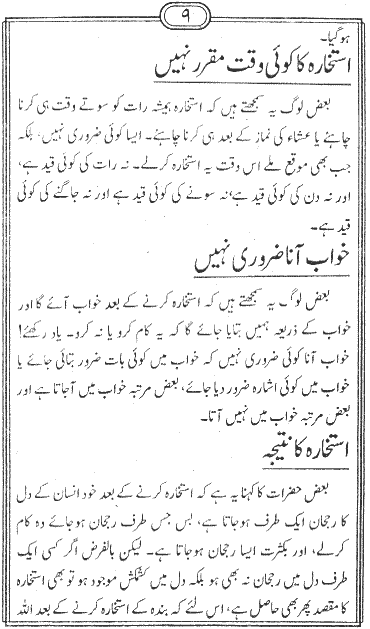 ۹
ہو گیا۔
استخارہ کا کوئی وقت مقرر نہیں
بعض لوگ یہ سمجھتے ہیں کہ استخارہ ہمیشہ رات کو سوتے وقت ہی کرنا
چاہئے یا عشاء کی نماز کے بعد ہی کرنا چاہئے۔ ایسا کوئی ضروری نہیں، بلکہ
جب بھی موقع ملے اس وقت یہ استخارہ کر لے۔ نہ رات کی کوئی قید ہے،
اور نہ دن کی کوئی قید ہے، نہ سونے کی کوئی قید ہے اور نہ جاگنے کی کوئی
قید ہے۔
خواب آنا ضروری نہیں
بعض لوگ یہ سمجھتے ہیں کہ استخارہ کرنے کے بعد خواب آئے گا اور
خواب کے ذریعہ ہمیں بتایا جائے گا کہ یہ کام کرو یا نہ کرو۔ یاد رکھئے!
خواب آنا کوئی ضروری نہیں کہ خواب میں کوئی بات ضرور بتائی جائے یا
خواب میں کوئی اشارہ ضرور دیا جائے، بعض مرتبہ خواب میں آجاتا ہے اور
بعض مرتبہ خواب میں نہیں آتا۔
استخارہ کا نتیجہ
بعض حضرات کا کہنا یہ ہے کہ استخارہ کرنے کے بعد خود انسان کے دل
کا رجحان ایک طرف ہو جاتا ہے، بس جس طرف رجحان ہو جائے وہ کام
کر لے، اور بکثرت ایسا رجحان ہو جاتا ہے۔ لیکن بالفرض اگر کسی ایک
طرف دل میں رجحان نہ بھی ہو بلکہ دل میں کشمکش موجود ہو تو بھی استخارہ
کا مقصد پھر بھی حاصل ہے، اس لئے کہ بندہ کے استخارہ کرنے کے بعد اللہ